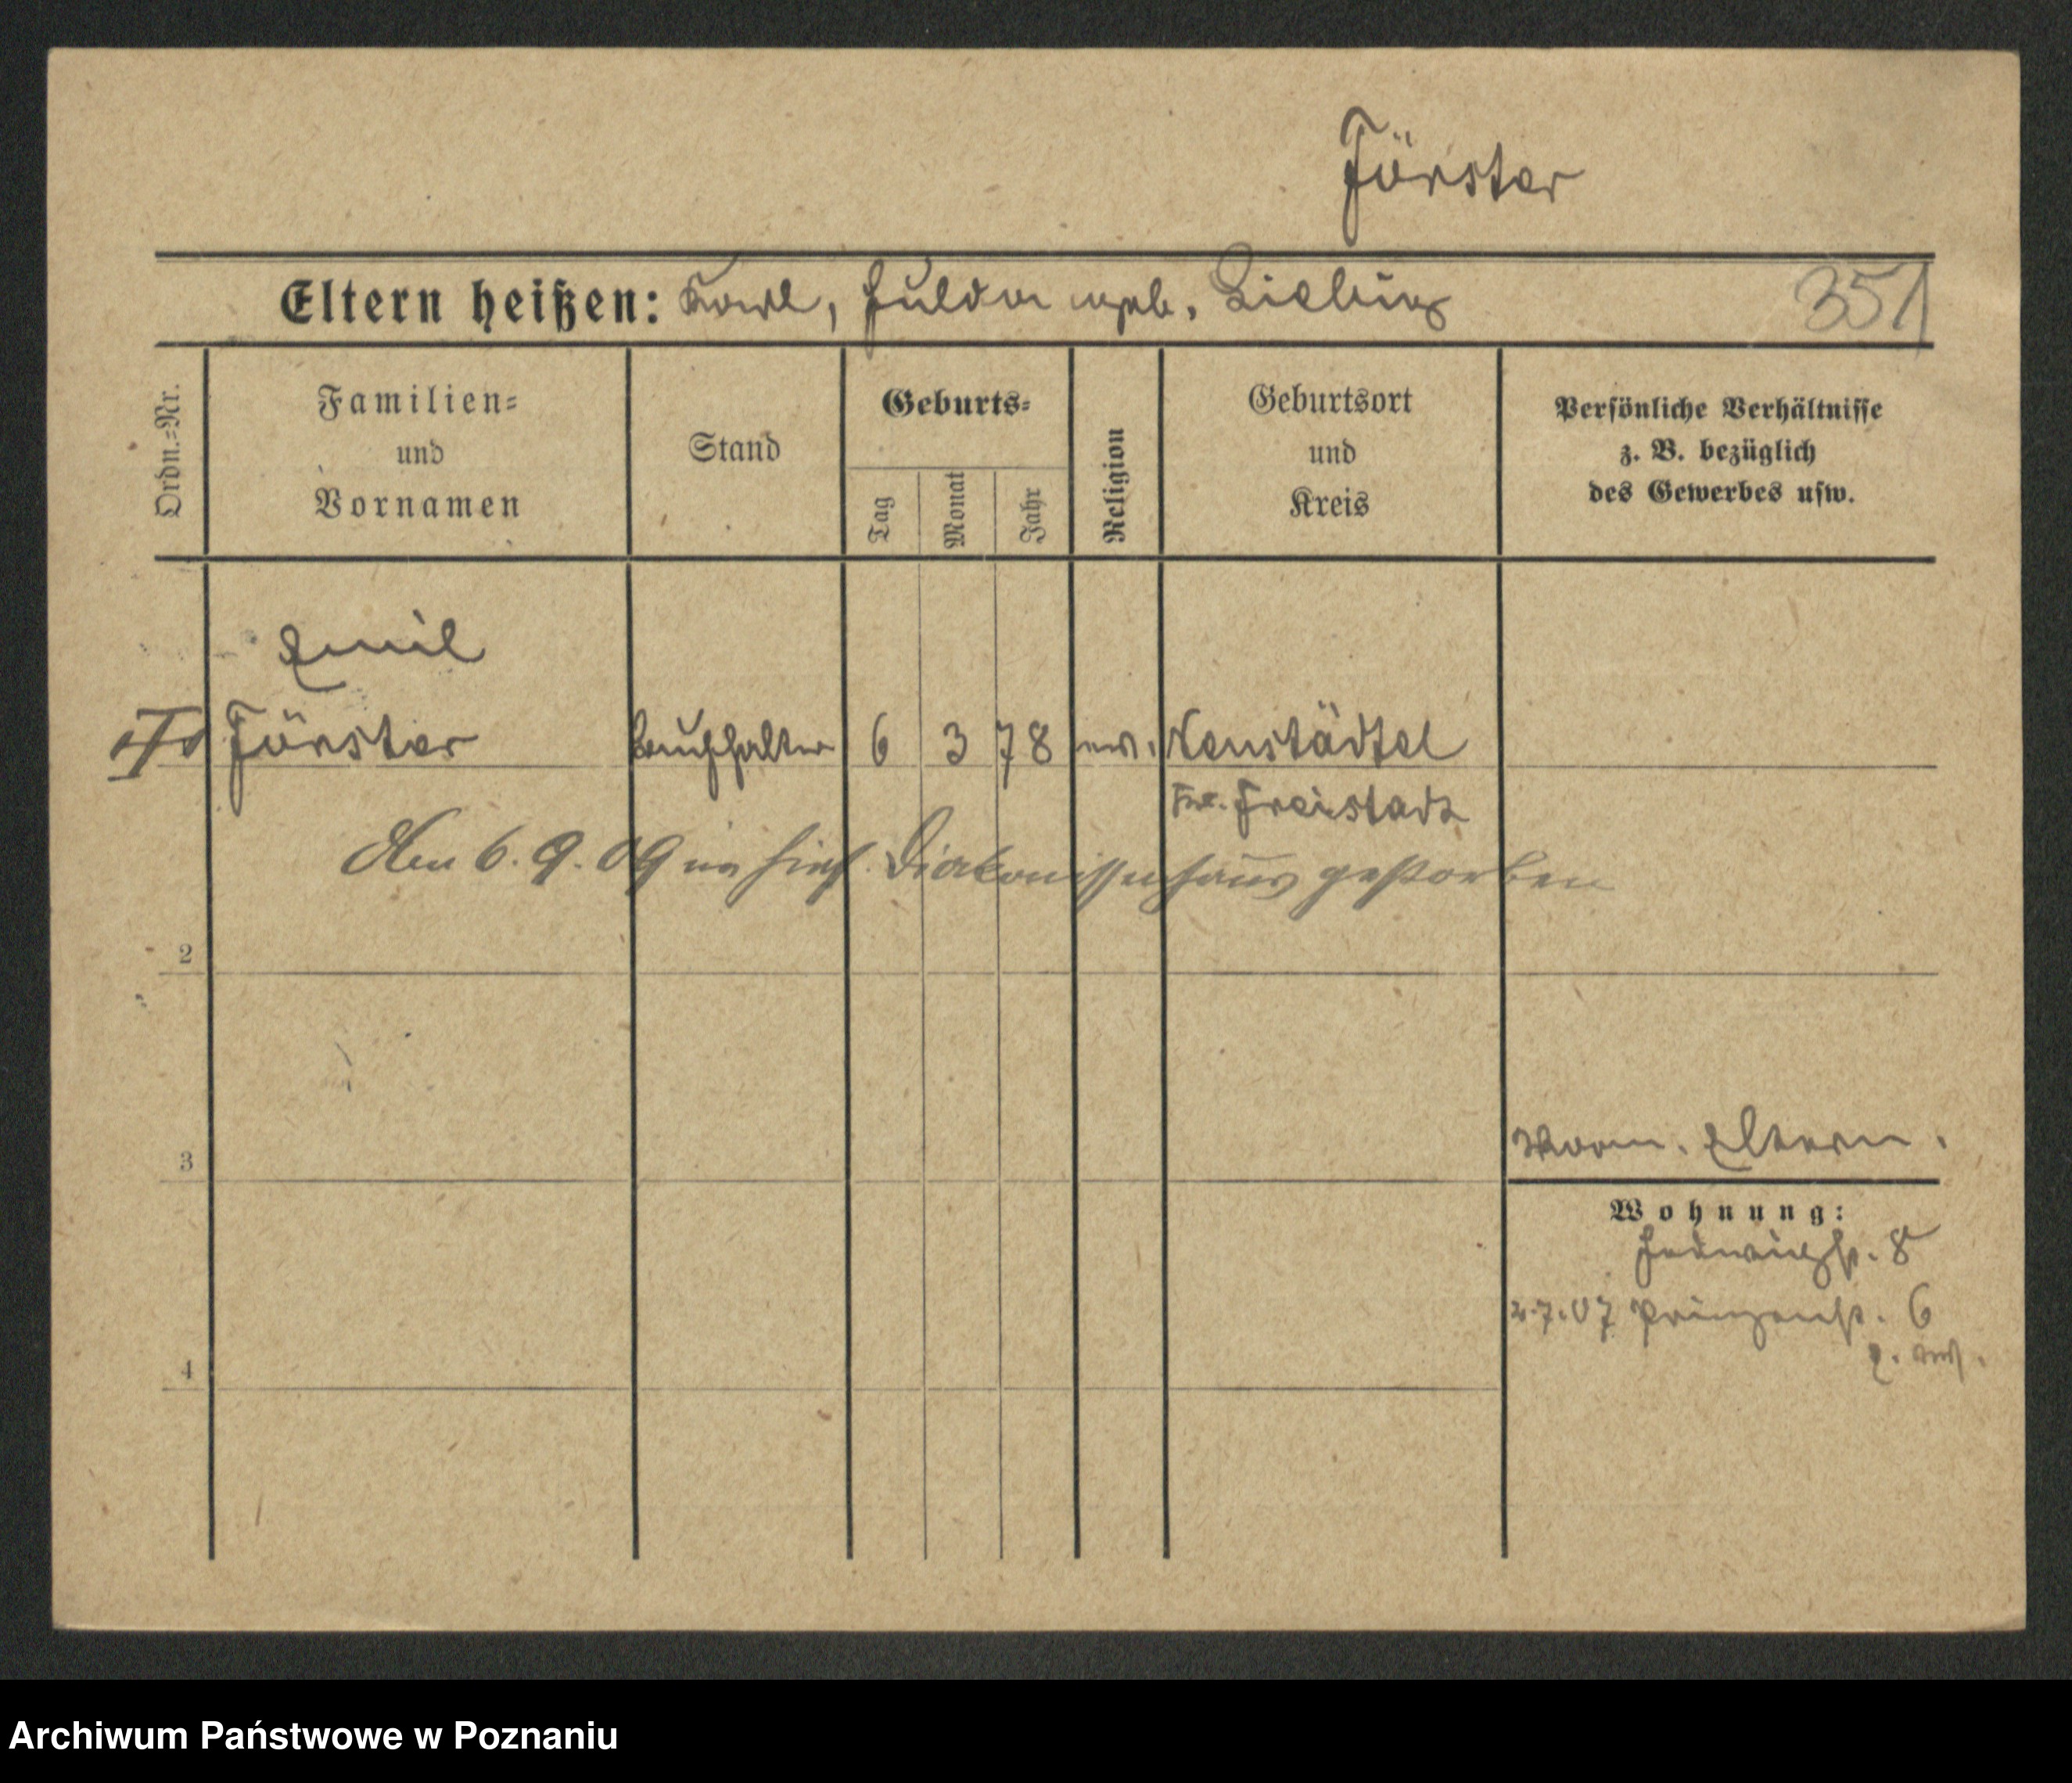 Förster
Eltern heißen: Karl, Hulda geb. Liebig
351
Ordn.=Nr.
Familien=
und
Vornamen
Stand
Geburts=
Tag
Monat
Jahr
Religion
Geburtsort
und
Kreis
Persönliche Verhältnisse
z. B. bezüglich
des Gewerbes usw.
Emil
Förster Buchhalter 6 3 78 ev. Neustädtel
Kr. Freistadt
Den 6.9.09 im hies. Diakonissenhaus gestorben
2
3
Eltern.
Wohnung:
Hedwigstr. 8
2.7.07 Prinzenstr. 6
4
Archiwum Państwowe w Poznaniu